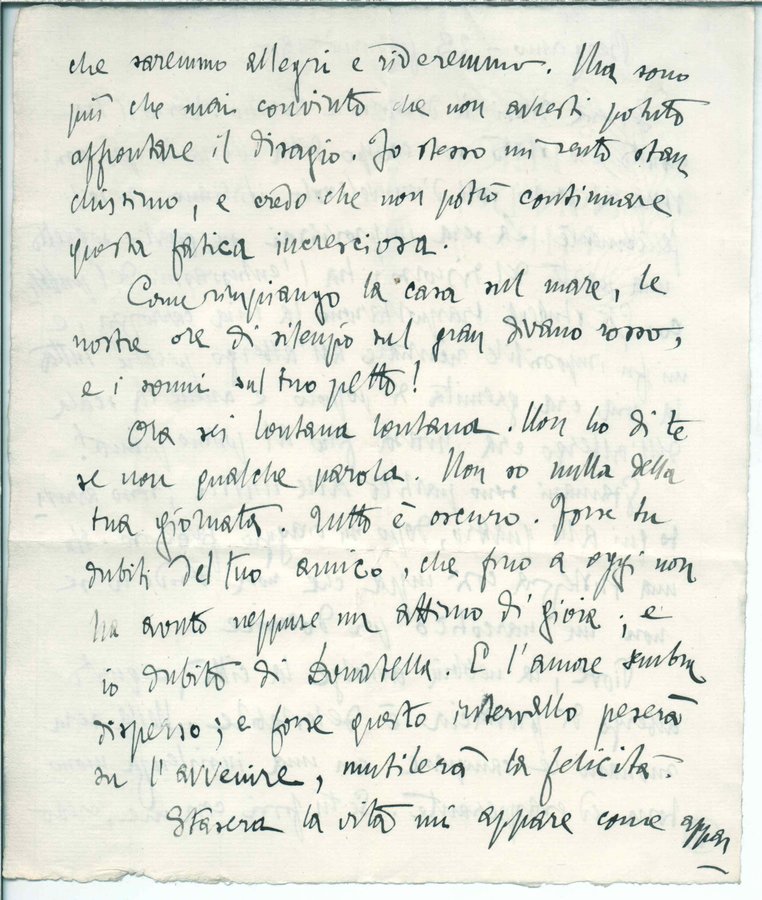 che saremmo allegri e rideremmo. Ma sono
più che mai convinto che non avresti potuto
affrontare il disagio. Io stesso mi sento stan
chissimo, e credo che non potrò continuare
questa fatica incresciosa.
Come rimpiango la casa sul mare, le
nostre ore di silenzio sul gran divano rosso,
e i sonni sul tuo petto!
Ora sei lontana lontana. Non ho di te
se non qualche parola. Non so nulla della
tua giornata. Tutto è oscuro. Forse tu
dubiti del tuo amico, che fino a oggi non
ha avuto neppure un attimo di gioia; e
io dubito di Donatella. E l'amore sembra
disperso; e forse questo intervallo peserà
su l'avvenire, mutilerà la felicità.
Stasera la vita mi appare come appar